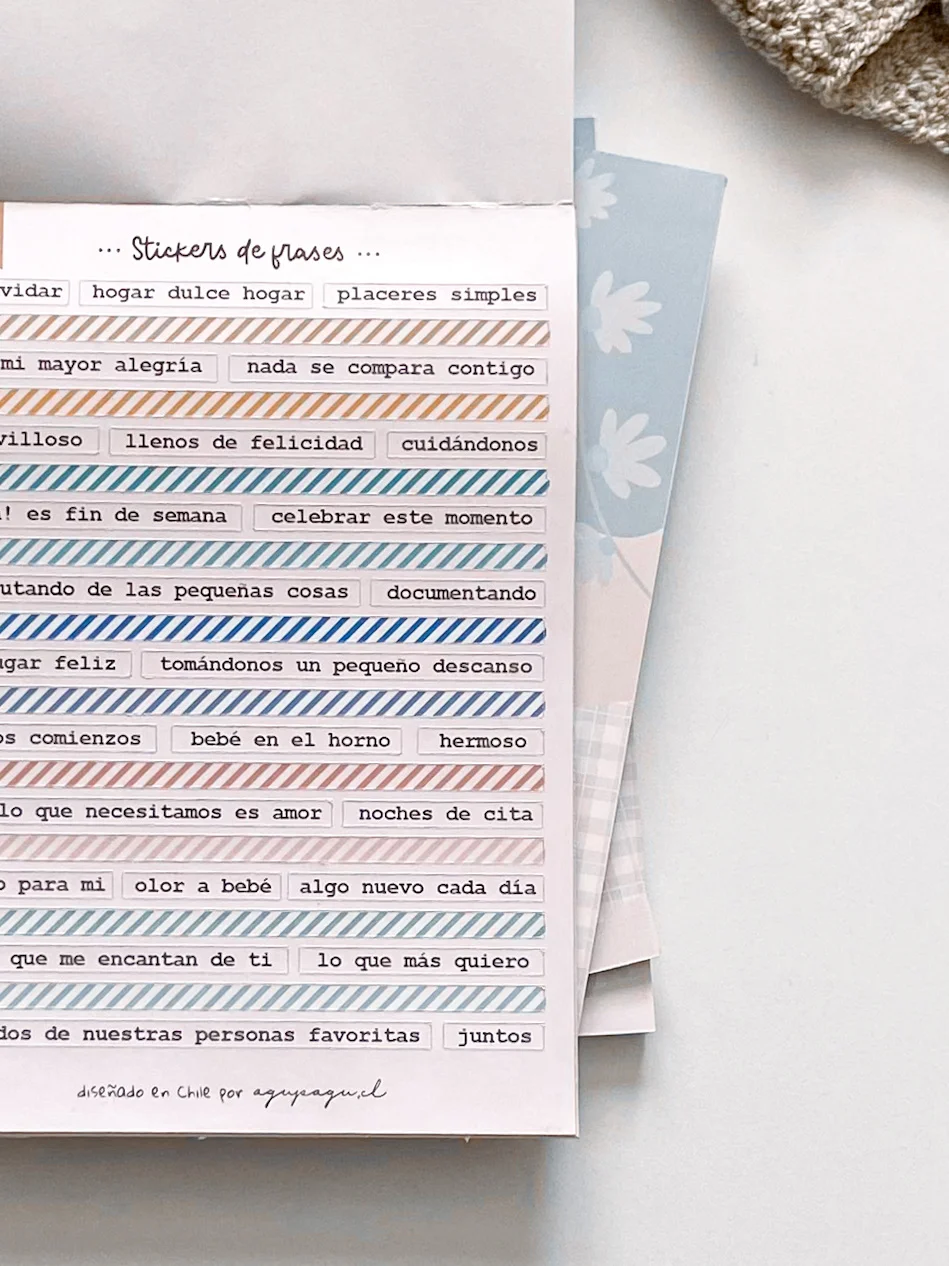 ··· Stickers de frases ···
vidar hogar dulce hogar placeres simples
mi mayor alegría nada se compara contigo
villoso llenos de felicidad cuidándonos
! es fin de semana celebrar este momento
utando de las pequeñas cosas documentando
ugar feliz tomándonos un pequeño descanso
os comienzos bebé en el horno hermoso
lo que necesitamos es amor noches de cita
o para mi olor a bebé algo nuevo cada día
que me encantan de ti lo que más quiero
dos de nuestras personas favoritas juntos
diseñado en Chile por